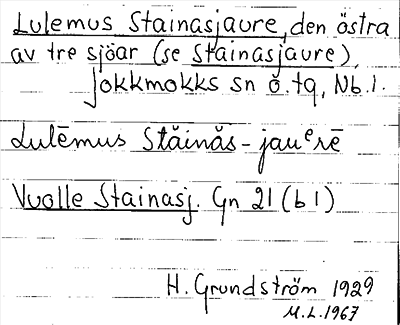 Lulemus Stainasjaure, den östra
av tre sjöar (se Stainasjaure),
Jokkmokks sn o. tg, Nb. l.
Lulēmus Stăinăs-jauᵉrē
Vuolle Stainasj. Gn 21 (b 1)
H. Grundström 1929
M.L. 1967